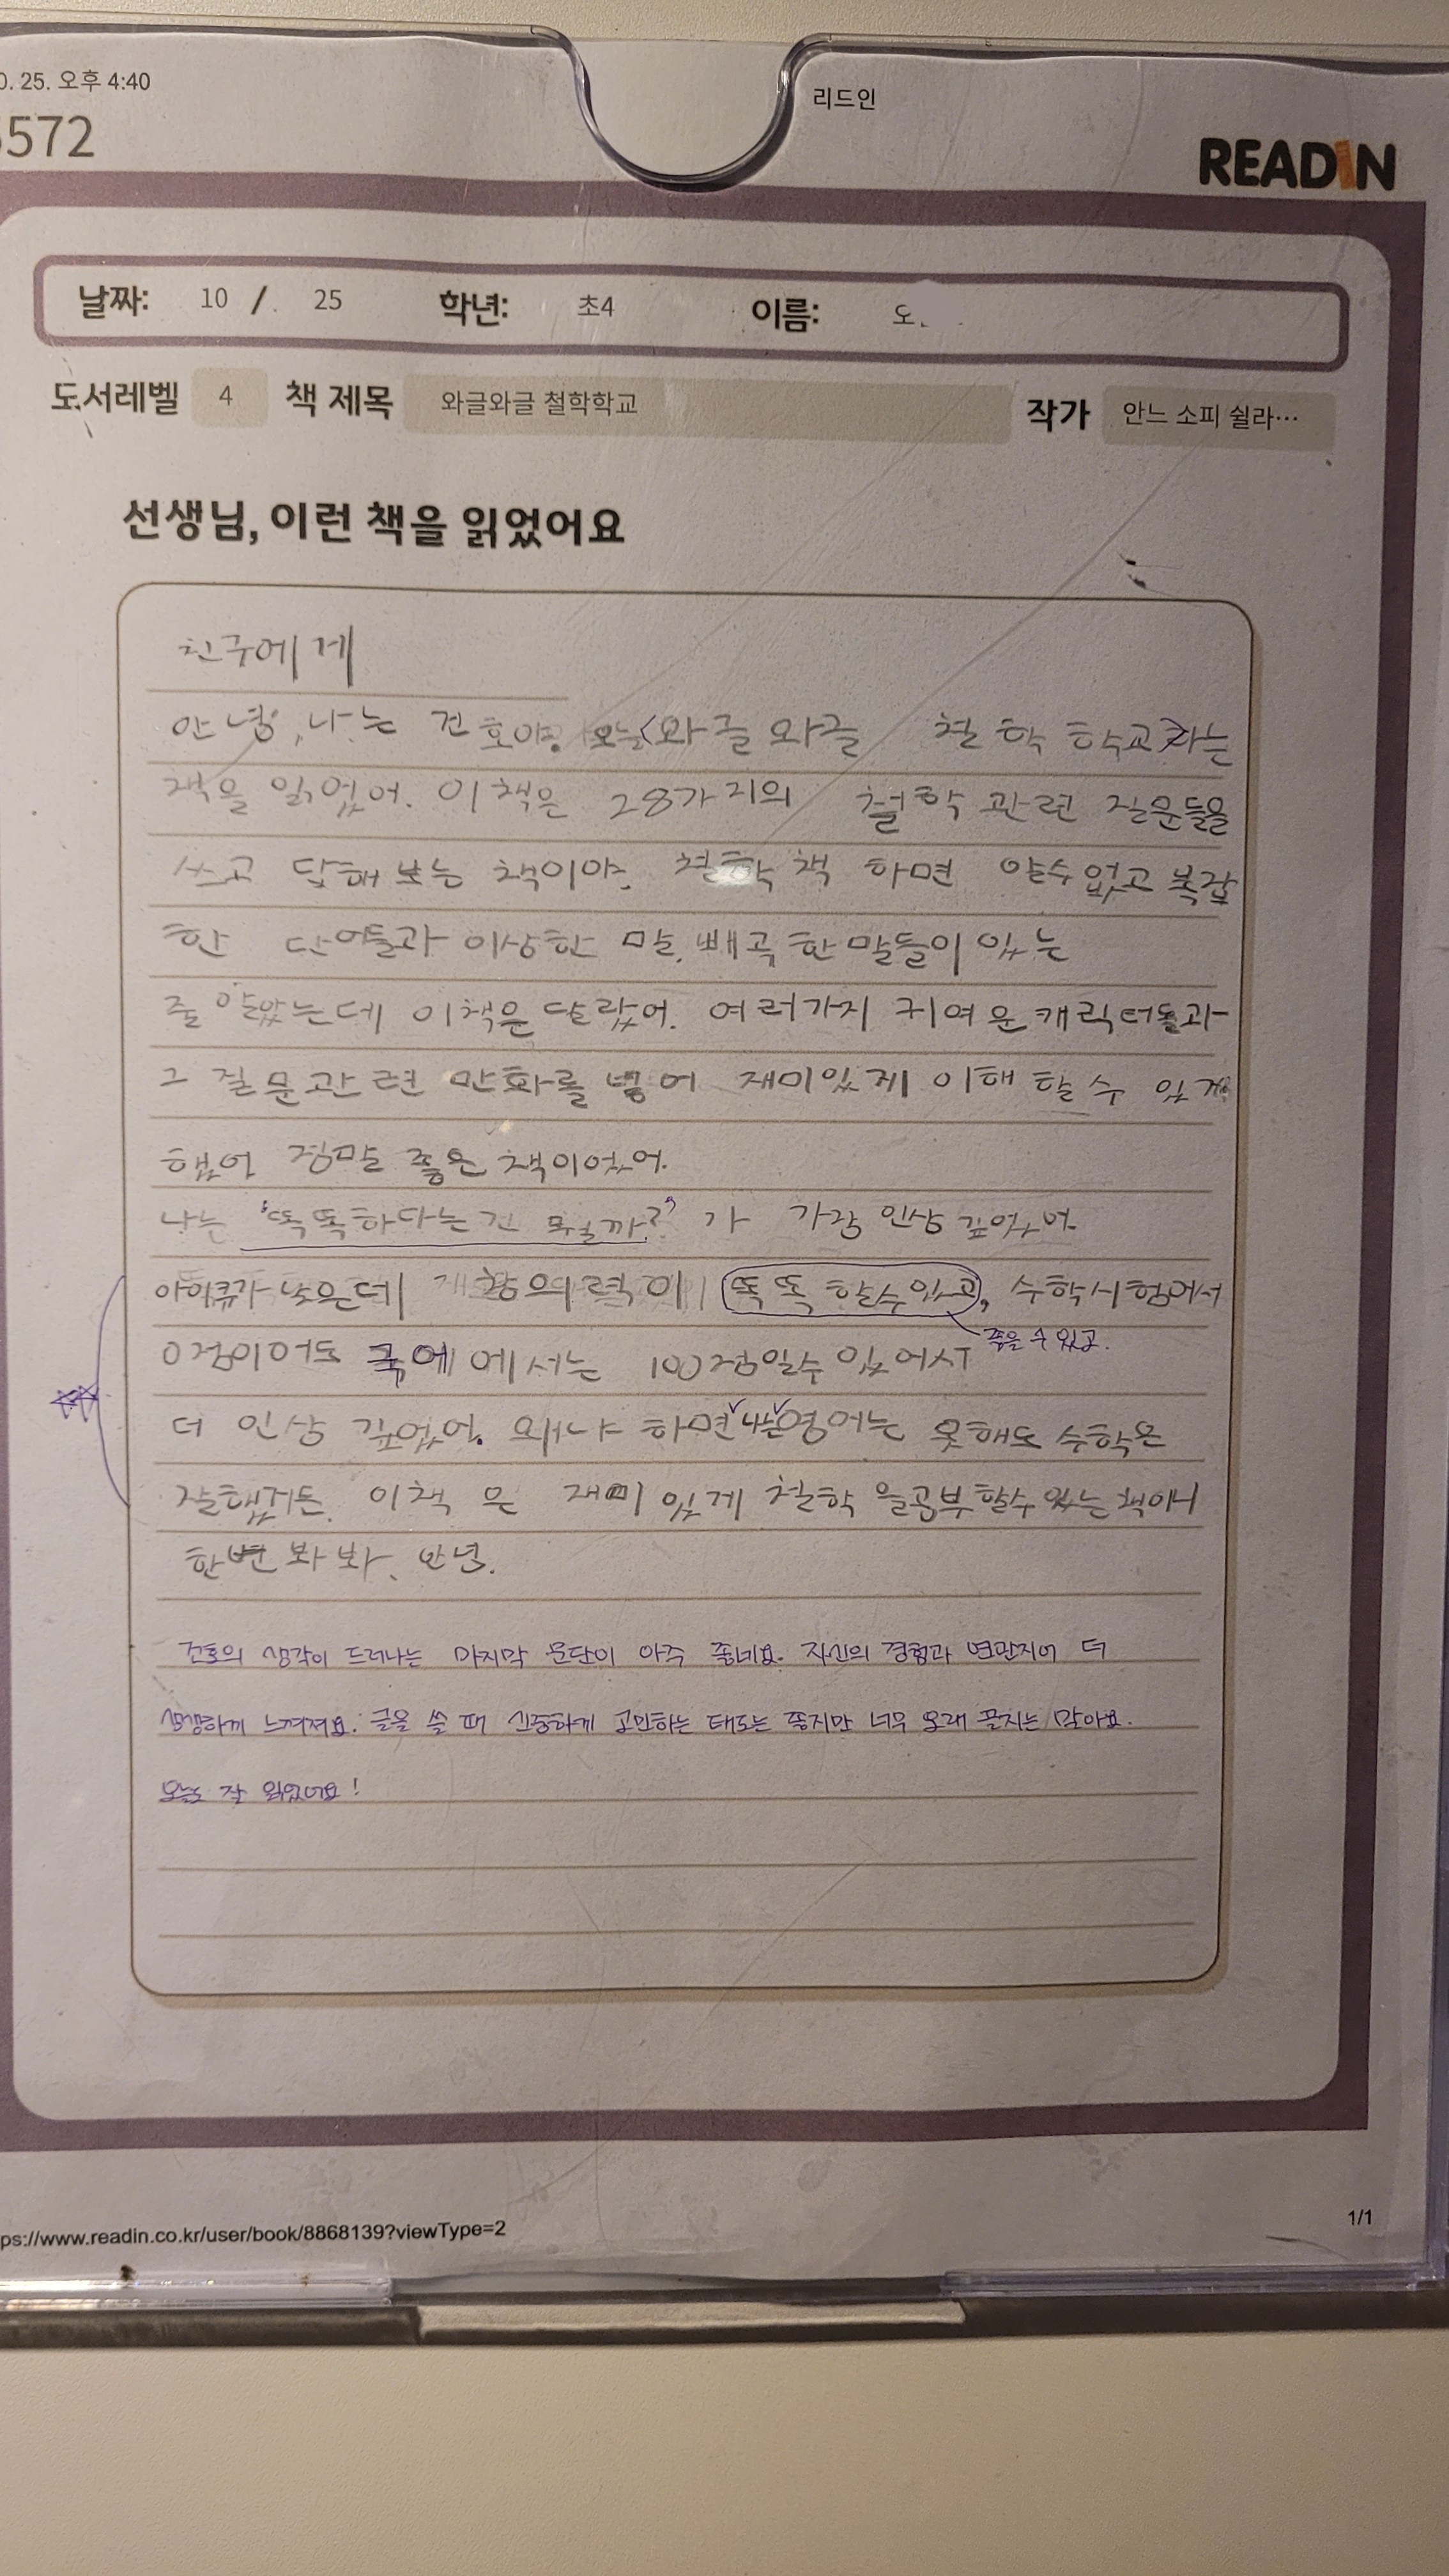 0. 25. 오후 4:40
리드인
5572
READIN
날짜: 10 / 25 학년: 초4 이름: 오
도서레벨 4 책 제목 와글와글 철학학교 작가 안느 소피 쉴라…
선생님, 이런 책을 읽었어요
친구에게
안녕, 나는 건호야. 오늘 <와글와글 철학 학교>라는
책을 읽었어. 이 책은 28가지의 철학 관련 질문들을
쓰고 답해 보는 책이야. 철학 책 하면 알수 없고 복잡
한 단어들과 이상한 말, 빼곡한 말들이 있는
줄 알았는데 이책은 달랐어. 여러가지 귀여운 캐릭터들과
그 질문관련 만화를 넣어 재미있게 이해 할 수 있게
했어 정말 좋은 책이었어.
나는 '똑똑하다는건 뭘까?' 가 가장 인상 깊었어.
아이큐가 낮은데 창의력이 똑똑 할수있고, 수학시험에서
좋을 수 있고.
0점이어도 에서는 100점일수 있어서
더 인상 깊었어. 왜냐 하면 나는 영어는 못해도 수학은
잘했거든. 이책 은 재미 있게 철학 을공부 할수 있는 책이니
한번 봐 봐. 안녕.
건호의 생각이 드러나는 마지막 문단이 아주 좋네요. 자신의 경험과 연관지어 더
생생하게 느껴져요. 글을 쓸 때 신중하게 고민하는 태도는 좋지만 너무 오래 끌지는 말아요.
오늘 잘 읽었어요!
ps://www.readin.co.kr/user/book/8868139?viewType=2
1/1